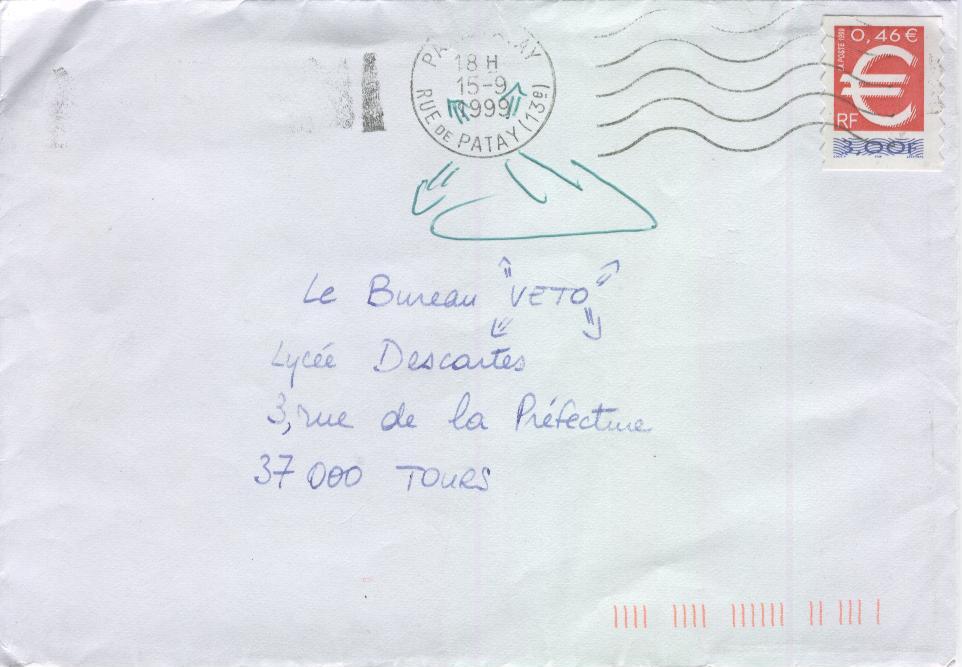 PA AY
18 H
15-9
1999
RUE DE PATAY (13e)
0,46 €
LA POSTE 1999
€
RF
3,00F
Le Bureau "VETO"
Lycée Descartes
3, rue de la Préfecture
37 000 TOURS